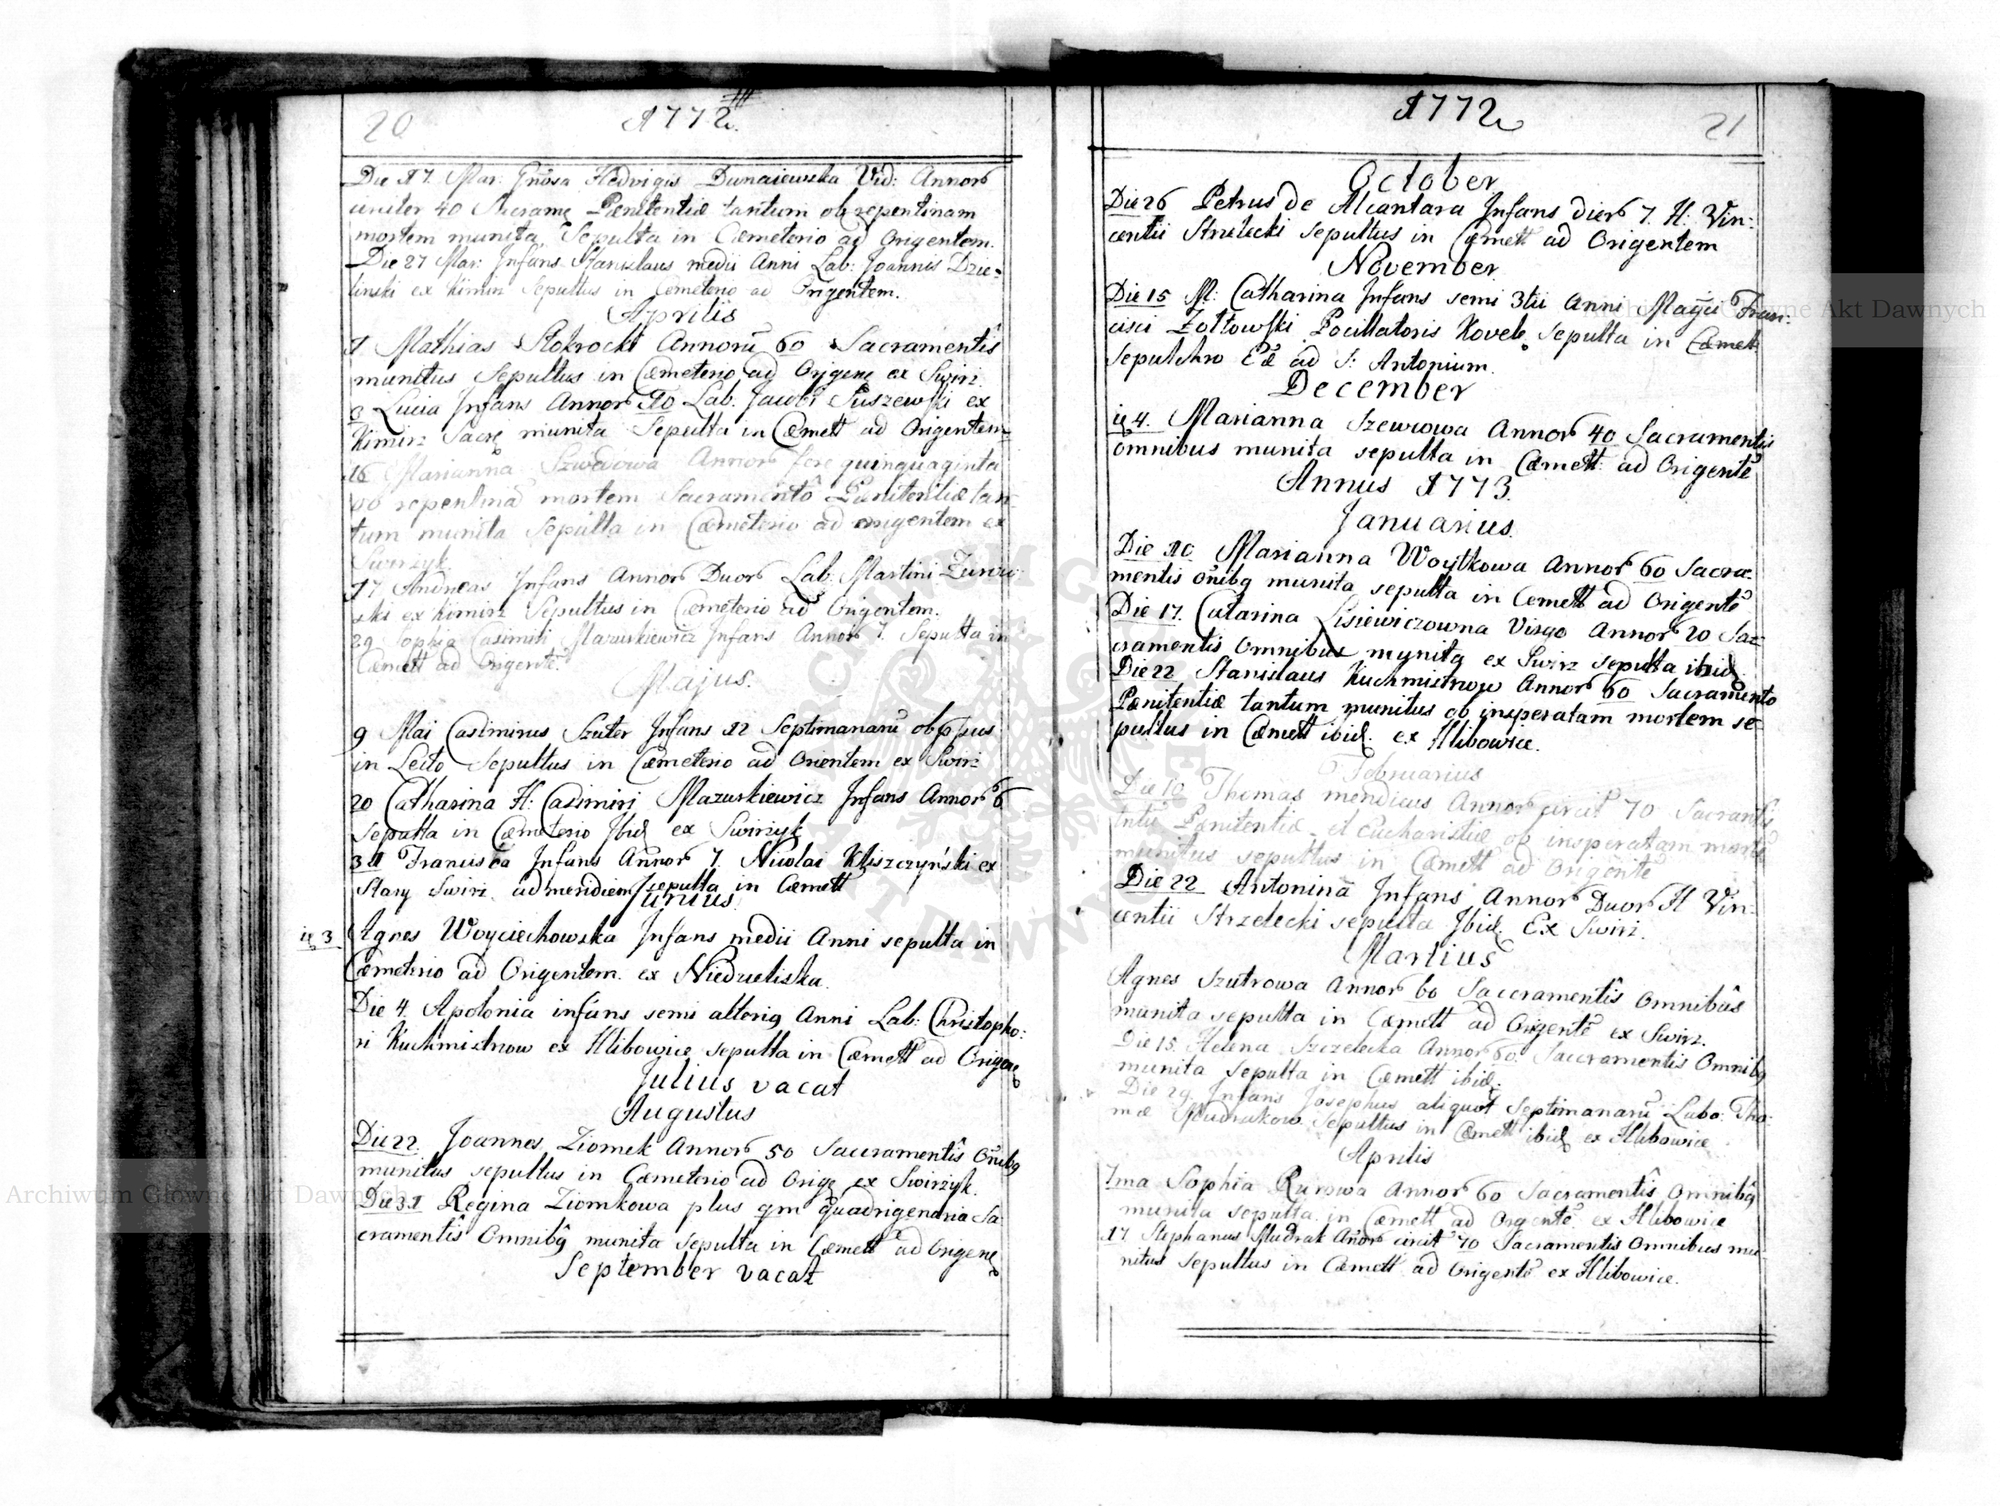 20
1772
Die 17. Mar: Gnosa Hedvigis Dunaiewska Vid: Annor
circiter 40 Sacrame Pænitentiæ tantum ob repentinam
mortem munita, Sepulta in Cæmeterio ad Origentem.
Die 27 Mar: Infans Stanislaus medii Anni Lab: Joannis Dzie-
linski ex Kimirz Sepultus in Cæmeterio ad Origentem.
Aprilis
1 Mathias Annorũ 60 Sacramentis
munitus Sepultus in Cæmeterio ad Origene ex Swirz
Lucia Infans Annor 10 Lab. Jacobi Suszewski ex
Kimirz Sacr munita Sepulta in Cæmett ad Origentem
16 Marianna Annor fere quinquaginta
ob repentinã mortem Sacramentô Pænitentiæ tan-
tum munita Sepulta in Cæmeterio ad origentem ex
Swirzyk
17 Andreas Infans Annor Duor Lab. Martini
ski ex Kimirz Sepultus in Cæmeterio ad Origentem.
29 Sophia Casimiri Mazurkiewicz Infans Annor 7. Sepulta in
Cæmett ad Origentẽ.
Majus.
9 Mai Casimirus Szuter Infans 12 Septimanarũ obppus
in Lecto Sepultus in Cæmeterio ad Orientem ex Swirz
20 Catharina H: Casimiri Mazurkiewicz Infans Annor 6
Sepulta in Cæmeterio Ibid ex Swirzyk
31 Francisca Infans Annor 7. Nicolai Kliszczyński ex
Stary Swirz ad meridiem sepulta in Cæmett
Junius
3 Agnes Woyciechowska Infans medii Anni sepulta in
Cæmeterio ad Origentem. ex Niedzieliska.
Die 4. Apolonia infans semi alteriq Anni Lab: Christopho:
ri Kuchmistrow ex Hlibowice sepulta in Cæmett ad Origene
Julius vacat
Augustus
Die 22. Joannes Ziomek Annor 50 Saccramentîs Oñibq
munitus sepultus in Cæmeterio ad Orige ex Swirzyk.
Die 31 Regina Ziomkowa plus qm quadrigenaria Sa-
cramentîs Omnibq munita Sepulta in Cæmett ad Origene
September vacat
1772
21
October
Die 26 Petrus de Alcantara Infans dier 7. H: Vin:
centii Strzelecki sepultus in Cæmett ad Origentem
November
Die 15 M: Catharina Infans semi 3tii Anni Magñi Fran:
cisci Zołtowski Pocillatoris Kovele Sepulta in Cæmett
sepulchro Eæ ad S: Antonium.
December
4. Marianna Szewcowa Annor 40 Sacramentis
omnibus munita sepulta in Cæmett: ad Origentẽ
Annus 1773.
Januarius.
Die 10 Marianna Woytkowa Annor 60 Sacra-
mentis oñibq munita sepulta in Cemett ad Origentẽ
Die 17. Catarina Lisiewiczowna Virgo Annor 20 Sac-
cramentis Omnibus mynita ex Swirz sepulta ibid
Die 22 Stanislaus Kuchmistrow Annor 60 Sacramento
Pænitentiæ tantum munitus ob insperatam mortem se-
pultus in Cæmett ibid. ex Hlibowice.
Februarius
Die 10 Thomas mendicus Annor circit 70 Sacrantis
Pænitentiæ et Eucharistiæ ob insperatam mortẽ
munitus sepultus in Cæmett ad Origentẽ
Die 22 Antonina Infans Annor Duor H Vin:
centii Strzelecki sepulta Ibid. Ex Swirz.
Martius
Agnes Szutrowa Annor 60 Saccramentîs Omnibûs
munita sepulta in Cæmett ad Origentẽ ex Swirz.
Die 15. Helena Szczelecka Annor 60. Saccramentis Omnibq
munita sepulta in Cæmett ibid.
Die 29 Infans Josephus aliquot Septimanarũ Labo: Tho:
mæ Mudrakow Sepultus in Cæmett ibid ex Hlibowice
Aprilis
1ma Sophia Rurowa Annor 60 Sacramentîs Omnibq
munita sepulta in Cæmett ad Orgentẽ. ex Hlibowice
17 Stephanus Mudrak Añor circit 70 Sacramentis Omnibus mu-
nitus sepultus in Cæmett ad Origentẽ ex Hlibowice.
Archiwum Główne Akt Dawnych
Archiwum Główne Akt Dawnych
ARCHIWUM GŁÓWNE AKT DAWNYCH